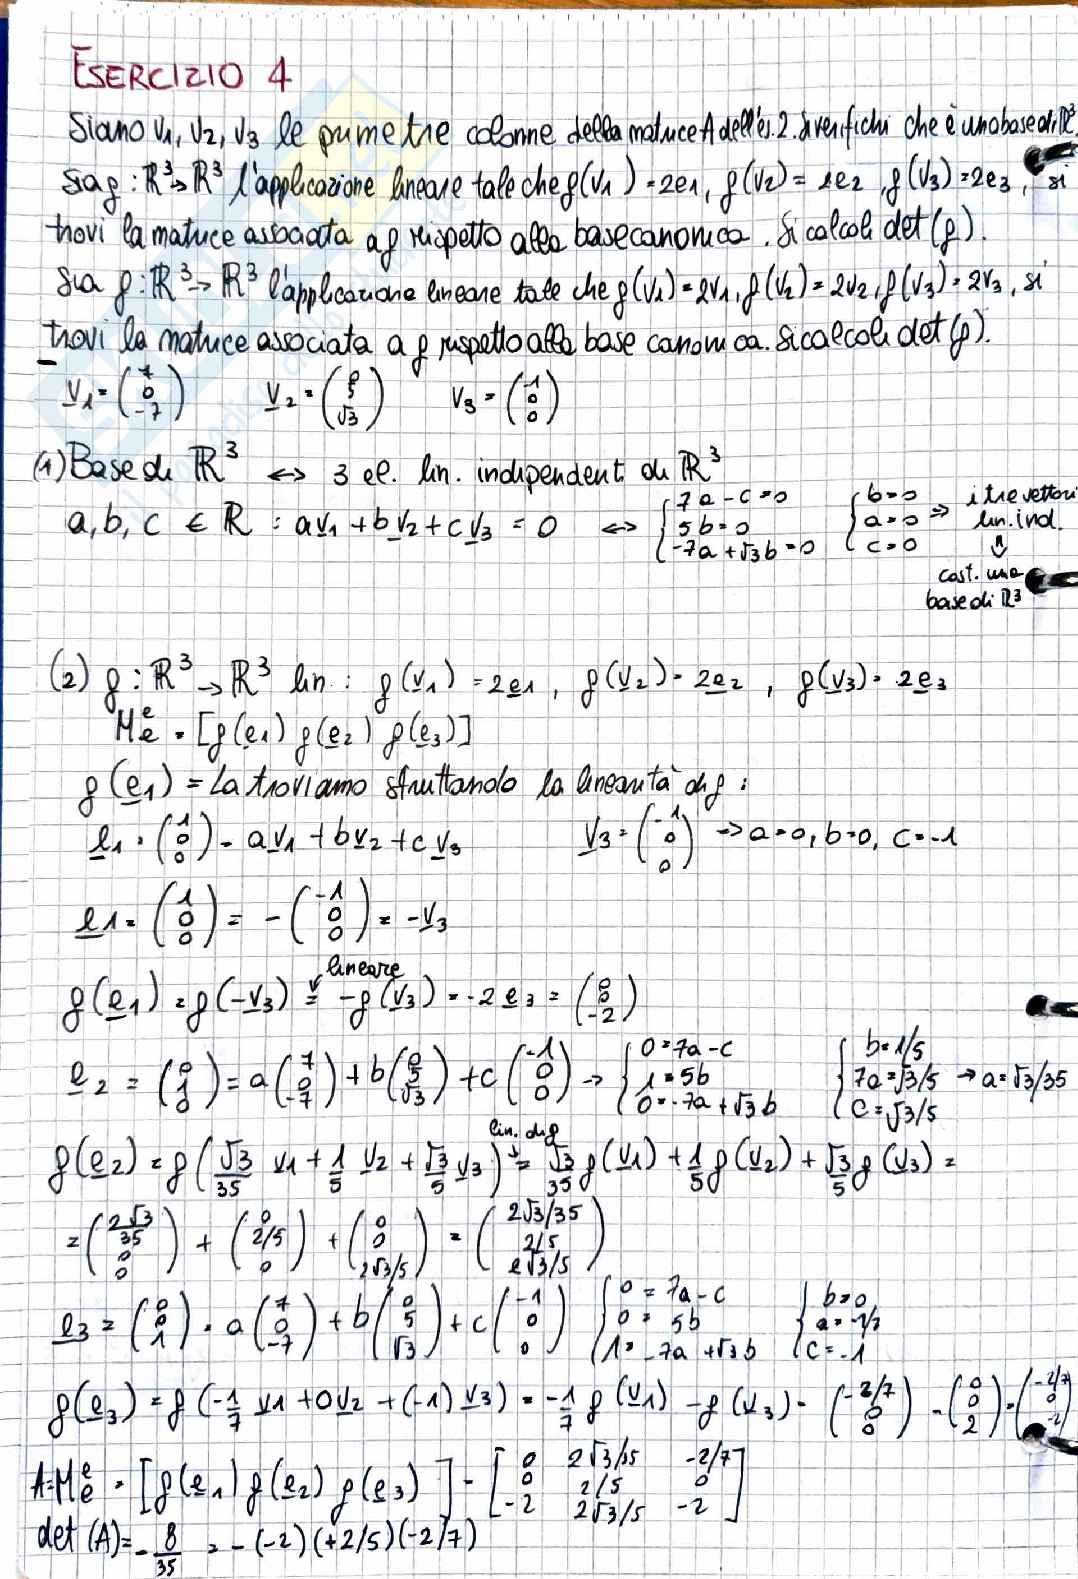 ESERCIZIO 4
Siano v1, v2, v3 le prime tre colonne della matrice A dell'es. 2. si verifichi che è una base di ℝ³.
Sia g: ℝ³→ℝ³ l'applicazione lineare tale che g(v1) = 2e1, g(v2) = 2e2, g(v3) = 2e3, si
trovi la matrice associata a g rispetto alla base canonica. Si calcoli det(g).
Sia g: ℝ³→ℝ³ l'applicazione lineare tale che g(v1) = 2v1, g(v2) = 2v2, g(v3) = 2v3, si
trovi la matrice associata a g rispetto alla base canonica. Si calcoli det(g).
v1 = (7 0 -7) v2 = (0 5 √3) v3 = (-1 0 0)
(1) Base di ℝ³ ↔ 3 el. lin. indipendenti di ℝ³
a, b, c ∈ ℝ : av1 + bv2 + cv3 = 0 ↔ { 7a - c = 0 5b = 0 -7a + √3b = 0 { b = 0 a = 0 c = 0 ⇒ i tre vettori lin. ind.
⇓
cost. una
base di ℝ³
(2) g: ℝ³→ℝ³ lin.: g(v1) = 2e1, g(v2) = 2e2, g(v3) = 2e3
M e e = [g(e1) g(e2) g(e3)]
g(e1) = La troviamo sfruttando la linearità di g:
e1 = (1 0 0) = av1 + bv2 + cv3 v3 = (-1 0 0) → a = 0, b = 0, c = -1
e1 = (1 0 0) = -(-1 0 0) = -v3
lineare
g(e1) = g(-v3) = -g(v3) = -2e3 = (0 0 -2)
e2 = (0 1 0) = a(7 0 -7) + b(0 5 √3) + c(-1 0 0) → { 0 = 7a - c 1 = 5b 0 = -7a + √3b { b = 1/5 7a = √3/5 → a = √3/35 c = √3/5
lin. di g
g(e2) = g(√3/35 v1 + 1/5 v2 + √3/5 v3) = √3/35 g(v1) + 1/5 g(v2) + √3/5 g(v3) =
= (2√3/35 0 0) + (0 2/5 0) + (0 0 2√3/5) = (2√3/35 2/5 2√3/5)
e3 = (0 0 1) = a(7 0 -7) + b(0 5 √3) + c(-1 0 0) { 0 = 7a - c 0 = 5b 1 = -7a + √3b { b = 0 a = -1/7 c = -1
g(e3) = g(-1/7 v1 + 0v2 + (-1)v3) = -1/7 g(v1) - g(v3) = (-2/7 0 0) - (0 0 2) = (-2/7 0 -2)
A = M e e = [g(e1) g(e2) g(e3)] = [0 2√3/35 -2/7 0 2/5 0 -2 2√3/5 -2]
det(A) = -8/35 = -(-2)(+2/5)(-2/7)